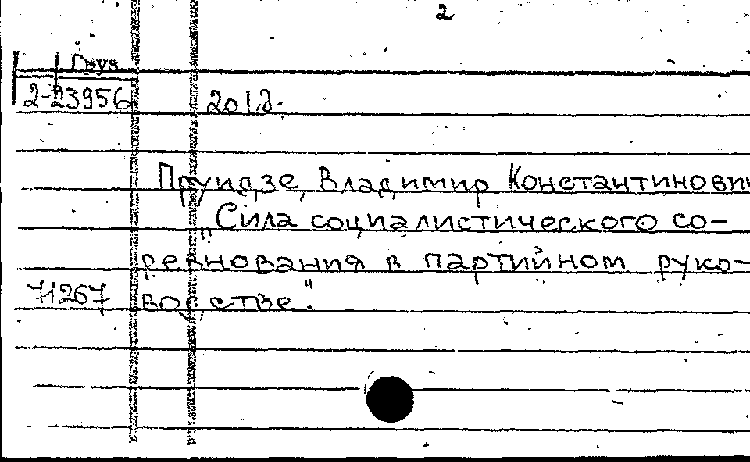 2
Груз
2-23956 201д.
Пруидзе, Владимир Константинович
„Сила социалистического со-
ревнования в партийном руко-
71267 водстве".